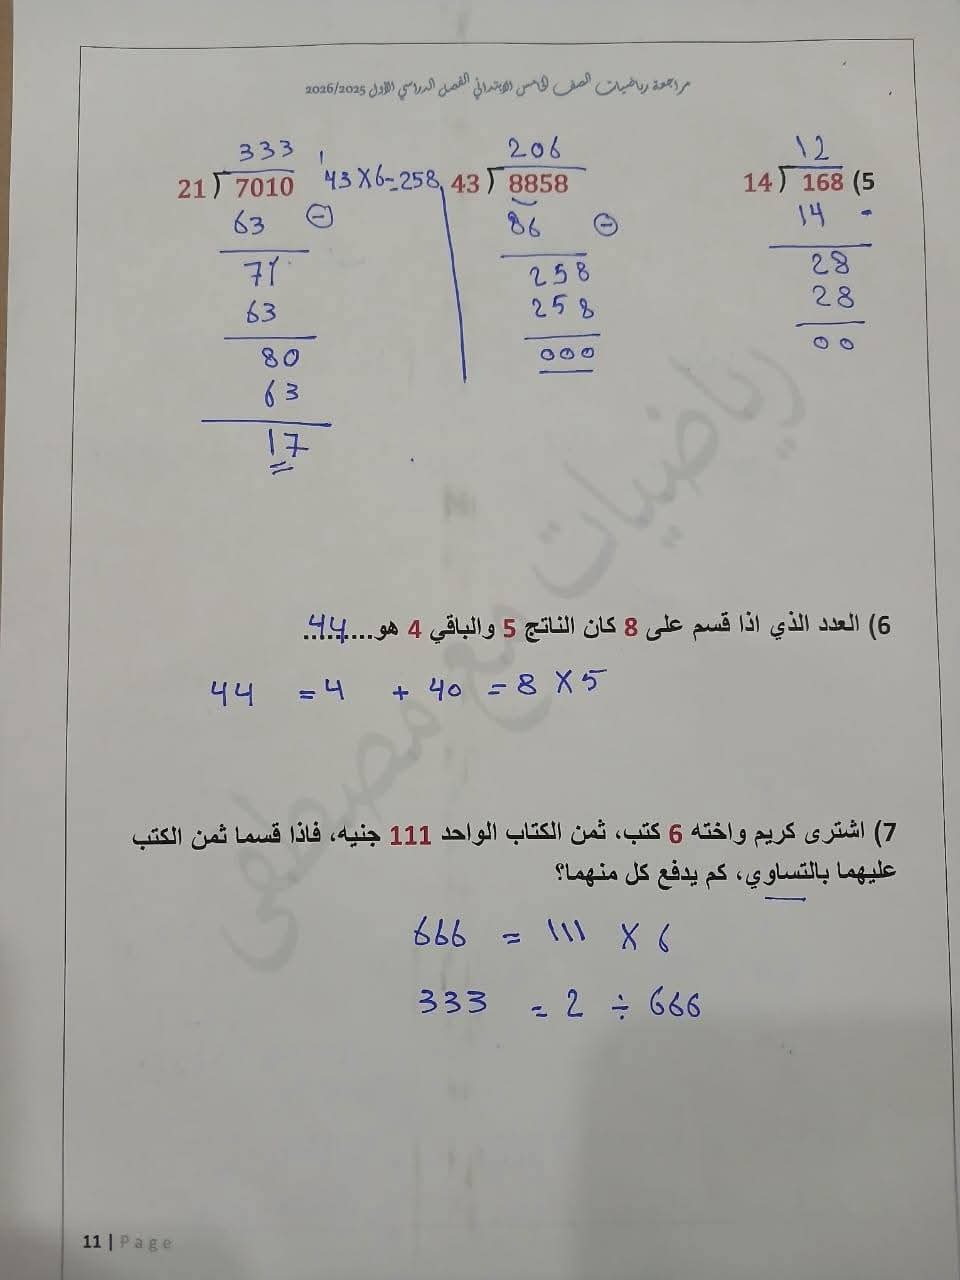 مراجعة رياضيات الصف الخامس الابتدائي الفصل الدراسي الأول 2026/2025
12
5) 168 ( 14
14 -
28
28
00
206
43 ) 8858
86 -
258
258
000
43 X 6 = 258
1
333
21 ) 7010
63 -
71
63
80
63
17
6) العدد الذي اذا قسم على 8 كان الناتج 5 والباقي 4 هو....44....
44 = 4 + 40 = 8 X 5
7) اشترى كريم واخته 6 كتب، ثمن الكتاب الواحد 111 جنيه، فاذا قسما ثمن الكتب
عليهما بالتساوي، كم يدفع كل منهما؟
666 = 111 X 6
333 = 2 ÷ 666
رياضيات مع مصطفى
11 | Page